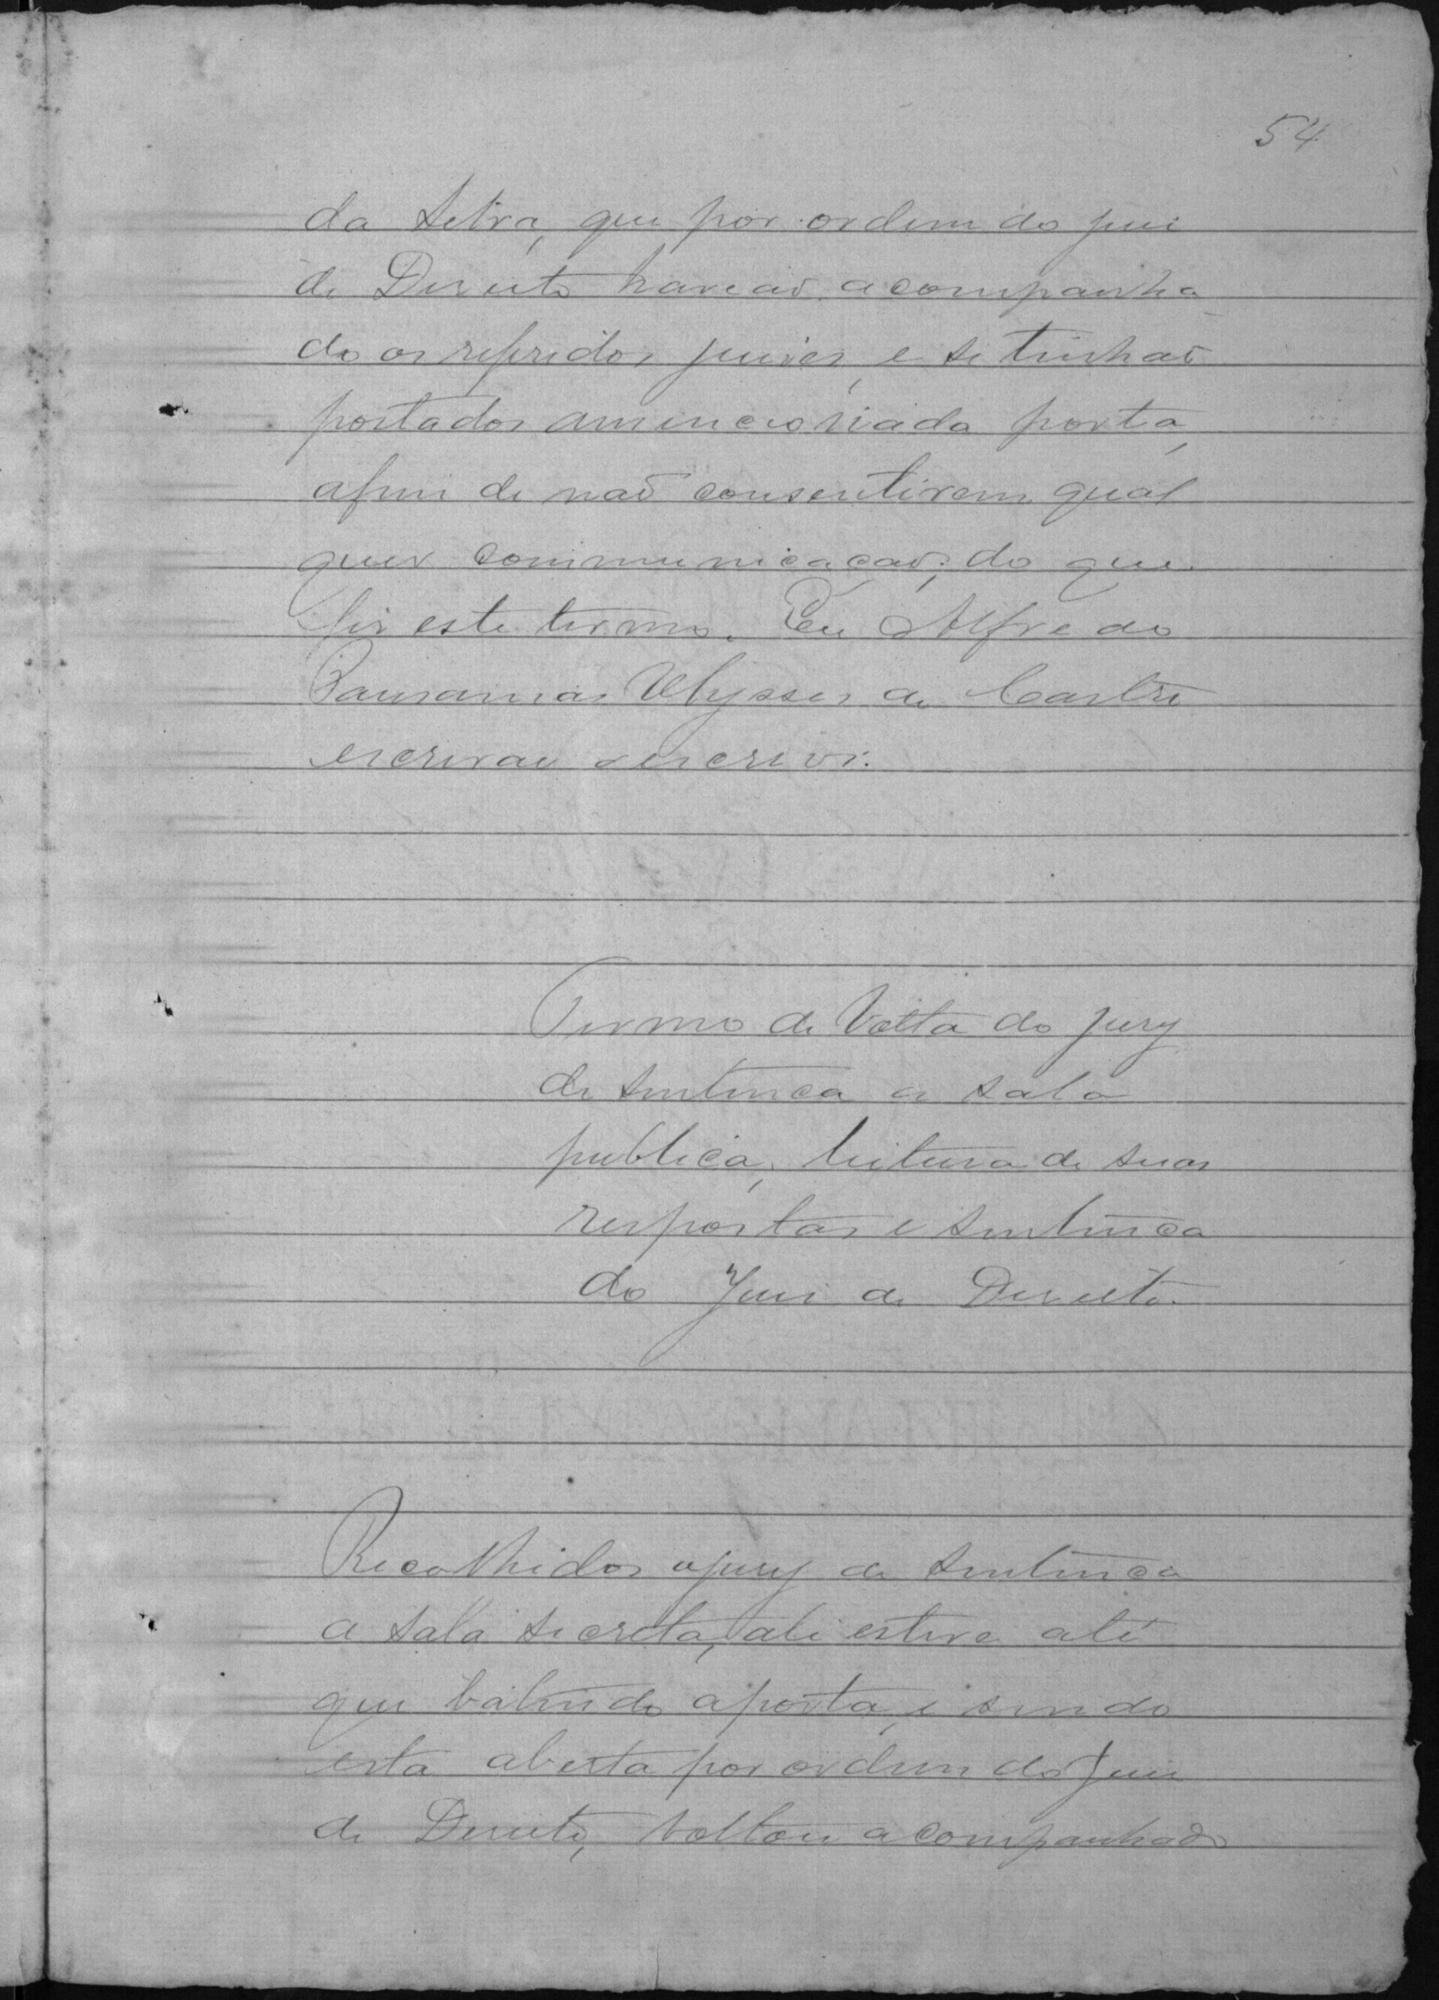 54
da Silva, que por ordem do juis
de Direito haviaõ acompanha
do os referidos juises, e se tinhaõ
postados amencionada porta,
afim de naõ consentirem qual
quer communicaçaõ; do que
fis este termo. Eu Alfredo
Pausanias Ulysses de Castro
escrivaõ escrevi.
Termo de Volta do jury
de sentença a sala
publica, leitura de suas
respostas e sentença
do Juis de Direito.
Recolhidos ojury de sentença
a sala secreta, ali esteve até
que batendo aporta, e sendo
esta aberta por ordem do Juis
de Direito, Voltou acompanhado